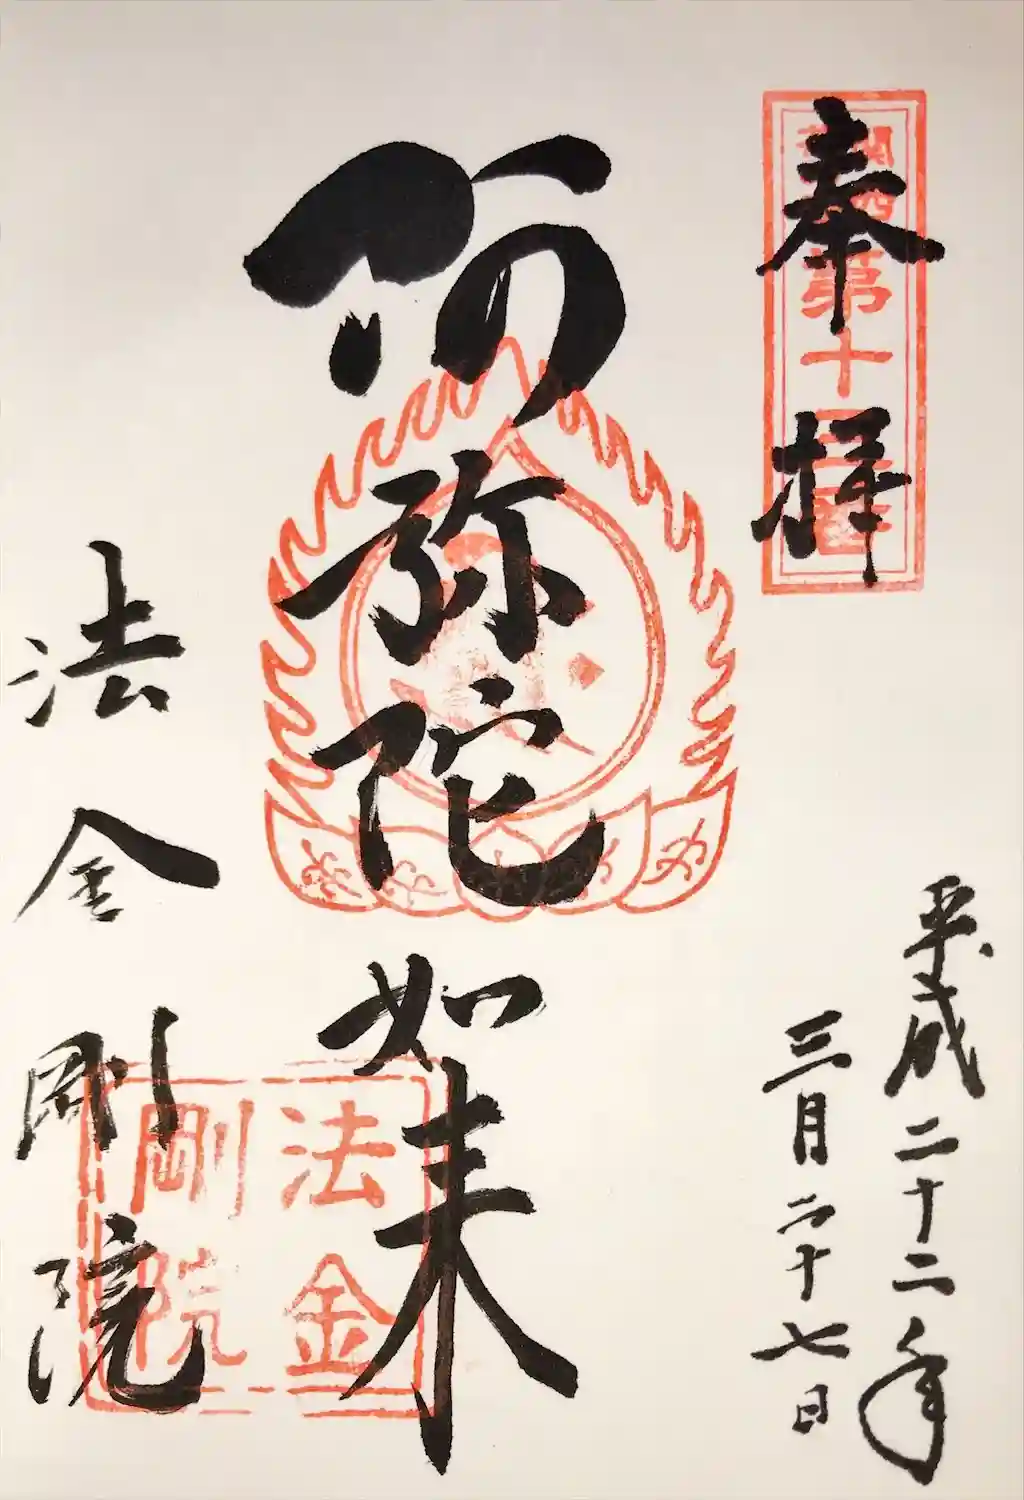 奉拝
第十
平成二十二年
三月二十七日
阿弥陀如来
法金剛院
法金
剛院